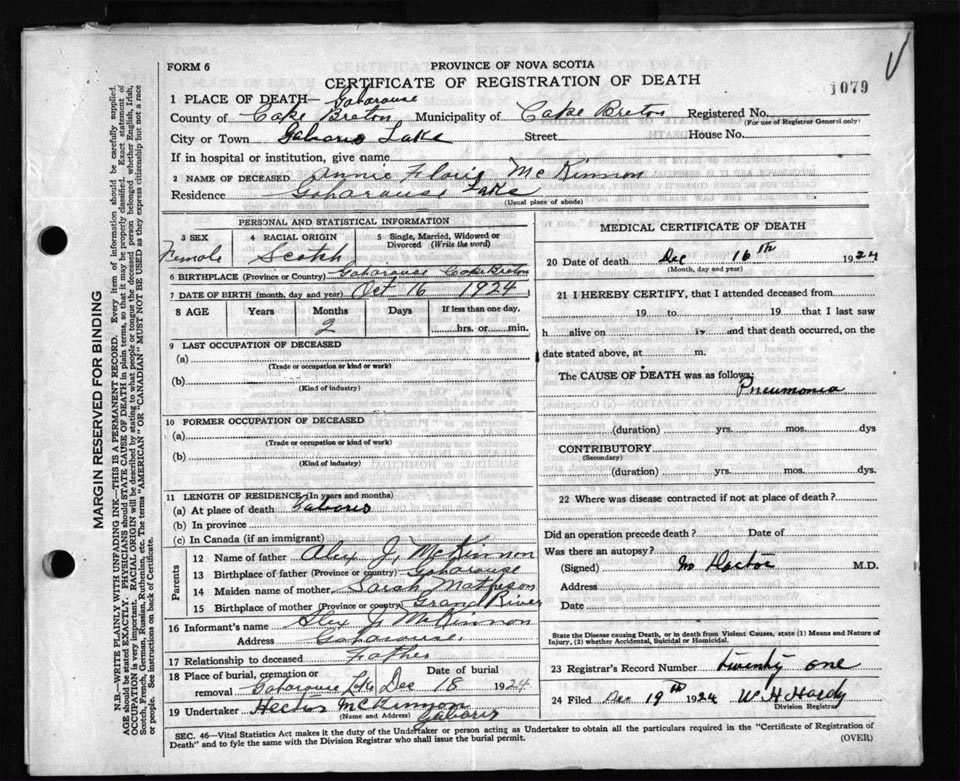 FORM 6
PROVINCE OF NOVA SCOTIA
CERTIFICATE OF REGISTRATION OF DEATH
1079
1 PLACE OF DEATH— Gabarouse
County of Cape Breton Municipality of Cape Breton Registered No.
(For use of Registrar General only)
City or Town Gabarus Lake Street House No.
If in hospital or institution, give name
2 NAME OF DECEASED Annie Florie McKinnon
Residence Gabarouse Lake
(Usual place of abode)
PERSONAL AND STATISTICAL INFORMATION
3 SEX 4 RACIAL ORIGIN 5 Single, Married, Widowed or Divorced (Write the word)
Female Scotch
6 BIRTHPLACE (Province or Country) Gabarouse Cape Breton
7 DATE OF BIRTH (month, day and year) Oct 16 1924
8 AGE Years Months Days If less than one day,
2 hrs. or min.
9 LAST OCCUPATION OF DECEASED
(a)
(Trade or occupation or kind of work)
(b)
(Kind of industry)
10 FORMER OCCUPATION OF DECEASED
(a)
(Trade or occupation or kind of work)
(b)
(Kind of industry)
11 LENGTH OF RESIDENCE (In years and months)
(a) At place of death Gabarus
(b) In province
(c) In Canada (if an immigrant)
Parents
12 Name of father Alex J. McKinnon
13 Birthplace of father (Province or country) Gabarouse
14 Maiden name of mother Sarah Matheson
15 Birthplace of mother (Province or country) Grand River
16 Informant's name Alex J. McKinnon
Address Gabarouse
17 Relationship to deceased Father
18 Place of burial, cremation or removal Date of burial
Gabarouse Lake Dec 18 1924
19 Undertaker Hector McKinnon
(Name and Address) Gabarus
MEDICAL CERTIFICATE OF DEATH
20 Date of death Dec 16th 1924
(Month, day and year)
21 I HEREBY CERTIFY, that I attended deceased from
19 to 19 that I last saw
h alive on 19 and that death occurred, on the
date stated above, at m.
The CAUSE OF DEATH was as follows:
Pneumonia
(duration) yrs. mos. dys
CONTRIBUTORY
(Secondary)
(duration) yrs. mos. dys.
22 Where was disease contracted if not at place of death?
Did an operation precede death? Date of
Was there an autopsy?
(Signed) No Doctor M.D.
Address
Date
State the Disease causing Death, or in death from Violent Causes, state (1) Means and Nature of Injury, (2) whether Accidental, Suicidal or Homicidal.
23 Registrar's Record Number twenty one
24 Filed Dec 19th 1924 W. H. Hardy
Division Registrar
SEC. 46—Vital Statistics Act makes it the duty of the Undertaker or person acting as Undertaker to obtain all the particulars required in the "Certificate of Registration of
Death" and to fyle the same with the Division Registrar who shall issue the burial permit. (OVER)
MARGIN RESERVED FOR BINDING
N.B.—WRITE PLAINLY WITH UNFADING INK—THIS IS A PERMANENT RECORD. Every item of information should be carefully supplied.
AGE should be stated EXACTLY. PHYSICIANS should STATE CAUSE OF DEATH in plain terms, so that it may be properly classified. Exact statement of
OCCUPATION is very important. RACIAL ORIGIN will be described by stating to what people or tongue the deceased person belonged, whether English, Irish,
Scotch, French, German, Russian, Ruthenian, etc. The terms "AMERICAN" OR "CANADIAN" MUST NOT BE USED as they express citizenship but not a race
or people. See instructions on back of Certificate.